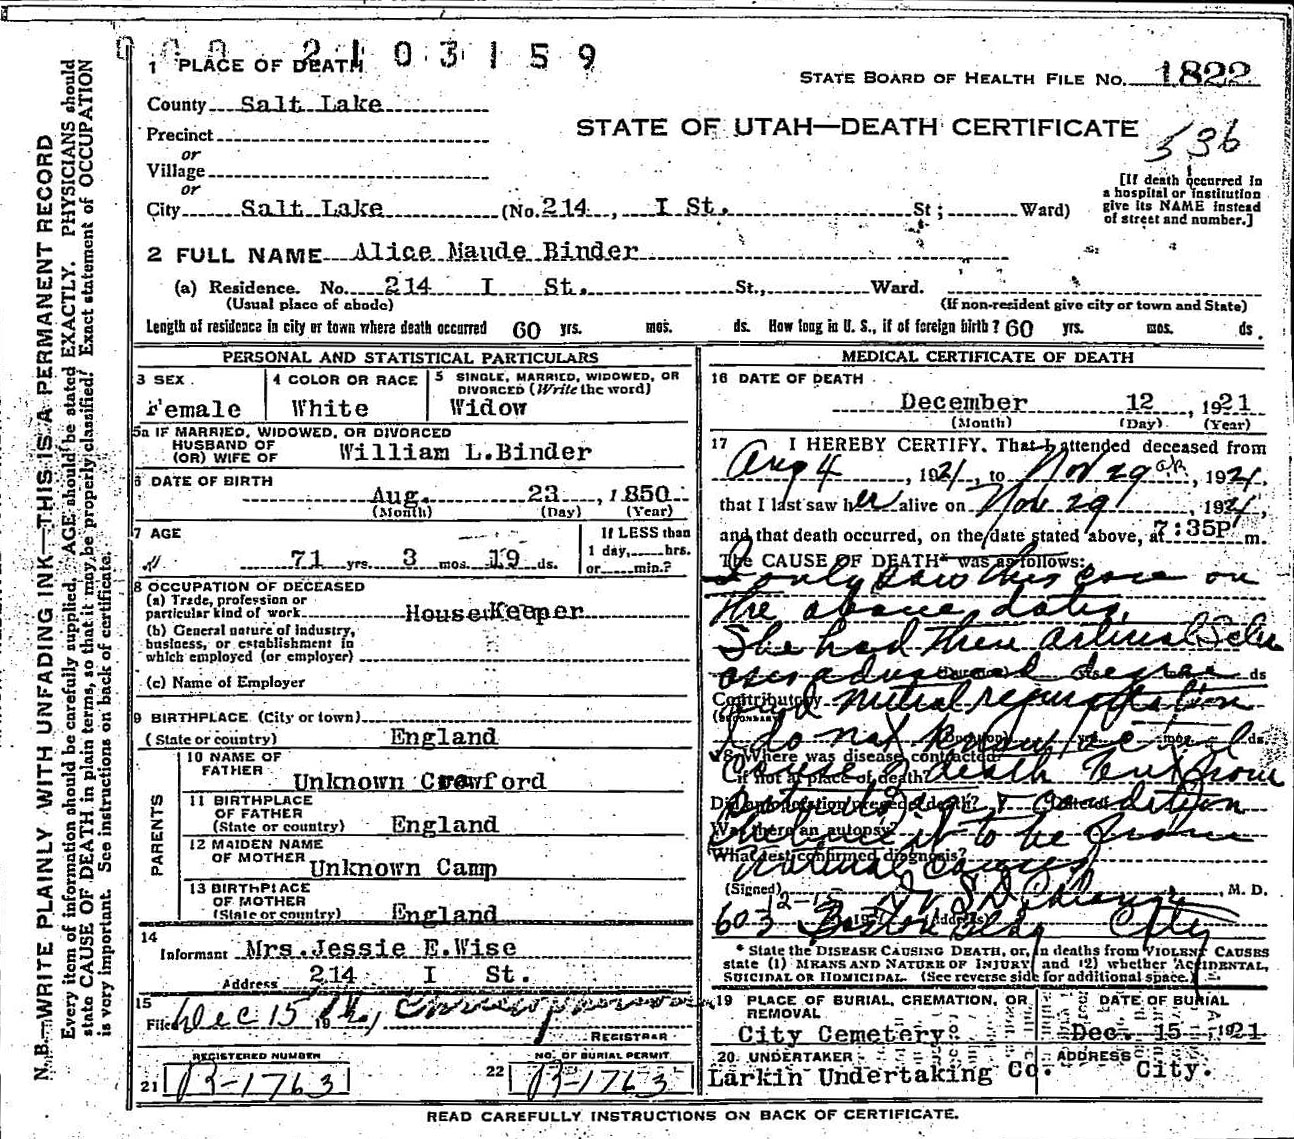 2103159
1 PLACE OF DEATH
STATE BOARD OF HEALTH FILE NO. 1822
County Salt Lake
STATE OF UTAH—DEATH CERTIFICATE
536
Precinct
or
Village
or
City Salt Lake (No. 214, I St. St; Ward)
[If death occurred in a hospital or institution give its NAME instead of street and number.]
2 FULL NAME Alice Maude Binder
(a) Residence. No. 214 I St. St., Ward.
(Usual place of abode) (If non-resident give city or town and State)
Length of residence in city or town where death occurred 60 yrs. mos. ds. How long in U. S., if of foreign birth? 60 yrs. mos. ds.
PERSONAL AND STATISTICAL PARTICULARS
3 SEX Female
4 COLOR OR RACE White
5 SINGLE, MARRIED, WIDOWED, OR DIVORCED (Write the word) Widow
5a IF MARRIED, WIDOWED, OR DIVORCED
HUSBAND OF
(OR) WIFE OF William L.Binder
6 DATE OF BIRTH
Aug. 23, 1850
(Month) (Day) (Year)
7 AGE
71 yrs. 3 mos. 19 ds.
If LESS than
1 day, hrs.
or min.?
8 OCCUPATION OF DECEASED
(a) Trade, profession or
particular kind of work House Keeper
(b) General nature of industry,
business, or establishment in
which employed (or employer)
(c) Name of Employer
9 BIRTHPLACE (City or town)
(State or country) England
PARENTS
10 NAME OF
FATHER Unknown Crowford
11 BIRTHPLACE
OF FATHER
(State or country) England
12 MAIDEN NAME
OF MOTHER Unknown Camp
13 BIRTHPLACE
OF MOTHER
(State or country) England
14
Informant Mrs.Jessie E.Wise
Address 214 I St.
15
Filed Dec 15 19
REGISTRAR
REGISTERED NUMBER
21 B-1763
NO. OF BURIAL PERMIT
22 B-1763
MEDICAL CERTIFICATE OF DEATH
16 DATE OF DEATH
December 12, 1921
(Month) (Day) (Year)
17 I HEREBY CERTIFY, That I attended deceased from
Aug 4, 1921, to Nov 29, 1921,
that I last saw her alive on Nov 29, 1921,
and that death occurred, on the date stated above, at 7:35P m.
The CAUSE OF DEATH* was as follows:
I only saw this case on
the above dates.
She had then arterial Scler
osis advanced degree
(Duration) yrs. mos. ds
Contributory
(SECONDARY)
and mitral regurgitation
I do not know
(Duration) yrs. mos. ds.
18 Where was disease contracted
if not at place of death?
death but from
Did an operation precede death? Date of
condition
Was there an autopsy?
I believe it to be from
What test confirmed diagnosis?
natural causes
(Signed) Dr S D M. D.
12-13 19 (Address)
603 Boston Bldg City
* State the DISEASE CAUSING DEATH, or, in deaths from VIOLENT CAUSES
state (1) MEANS AND NATURE OF INJURY and (2) whether ACCIDENTAL,
SUICIDAL OR HOMICIDAL. (See reverse side for additional space.)
19 PLACE OF BURIAL, CREMATION, OR REMOVAL
City Cemetery
DATE OF BURIAL
Dec. 15, 1921
20. UNDERTAKER
Larkin Undertaking Co.
ADDRESS
City.
READ CAREFULLY INSTRUCTIONS ON BACK OF CERTIFICATE.
N. B.—WRITE PLAINLY WITH UNFADING INK—THIS IS A PERMANENT RECORD
Every item of information should be carefully supplied. AGE should be stated EXACTLY. PHYSICIANS should
state CAUSE OF DEATH in plain terms, so that it may be properly classified. Exact statement of OCCUPATION
is very important. See instructions on back of certificate.